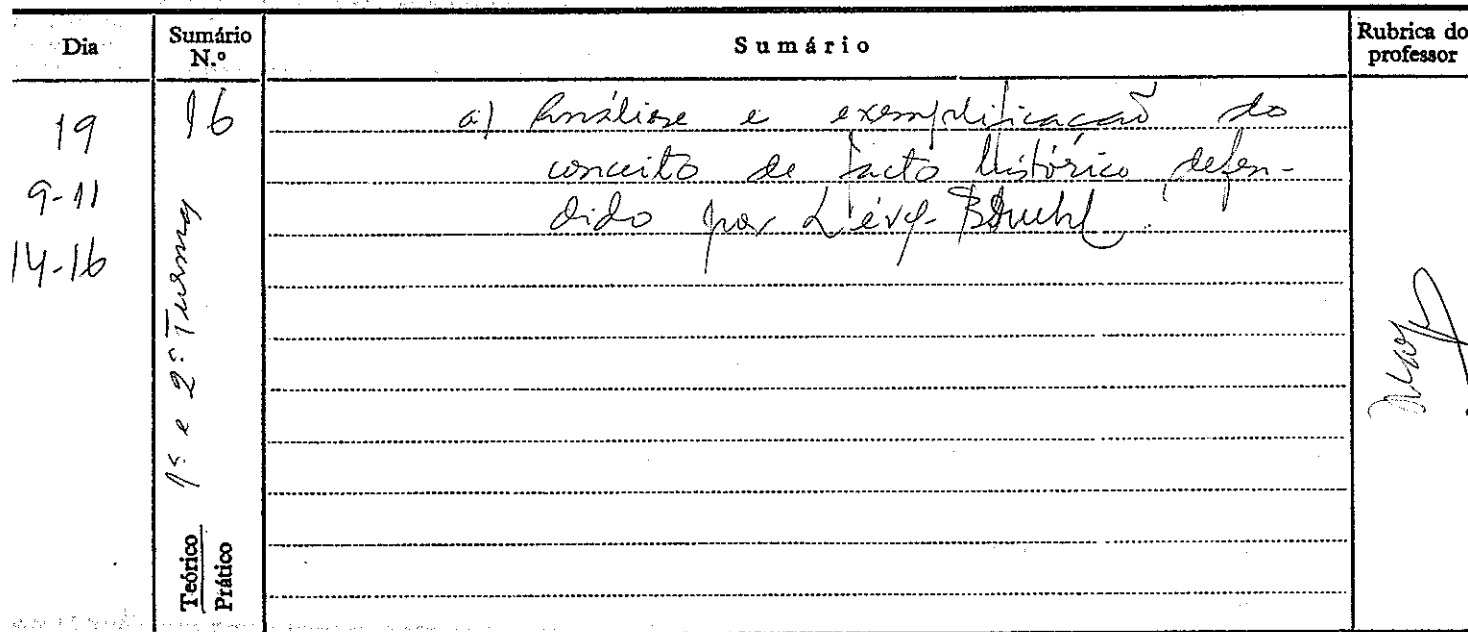 Dia
Sumário N.º
Sumário
Rubrica do professor
19
9-11
14-16
16
1ª e 2ª Turmas
Teórico
Prático
a) Análise e exemplificação do
conceito de facto histórico defen-
dido por Lévy-Bruhl.